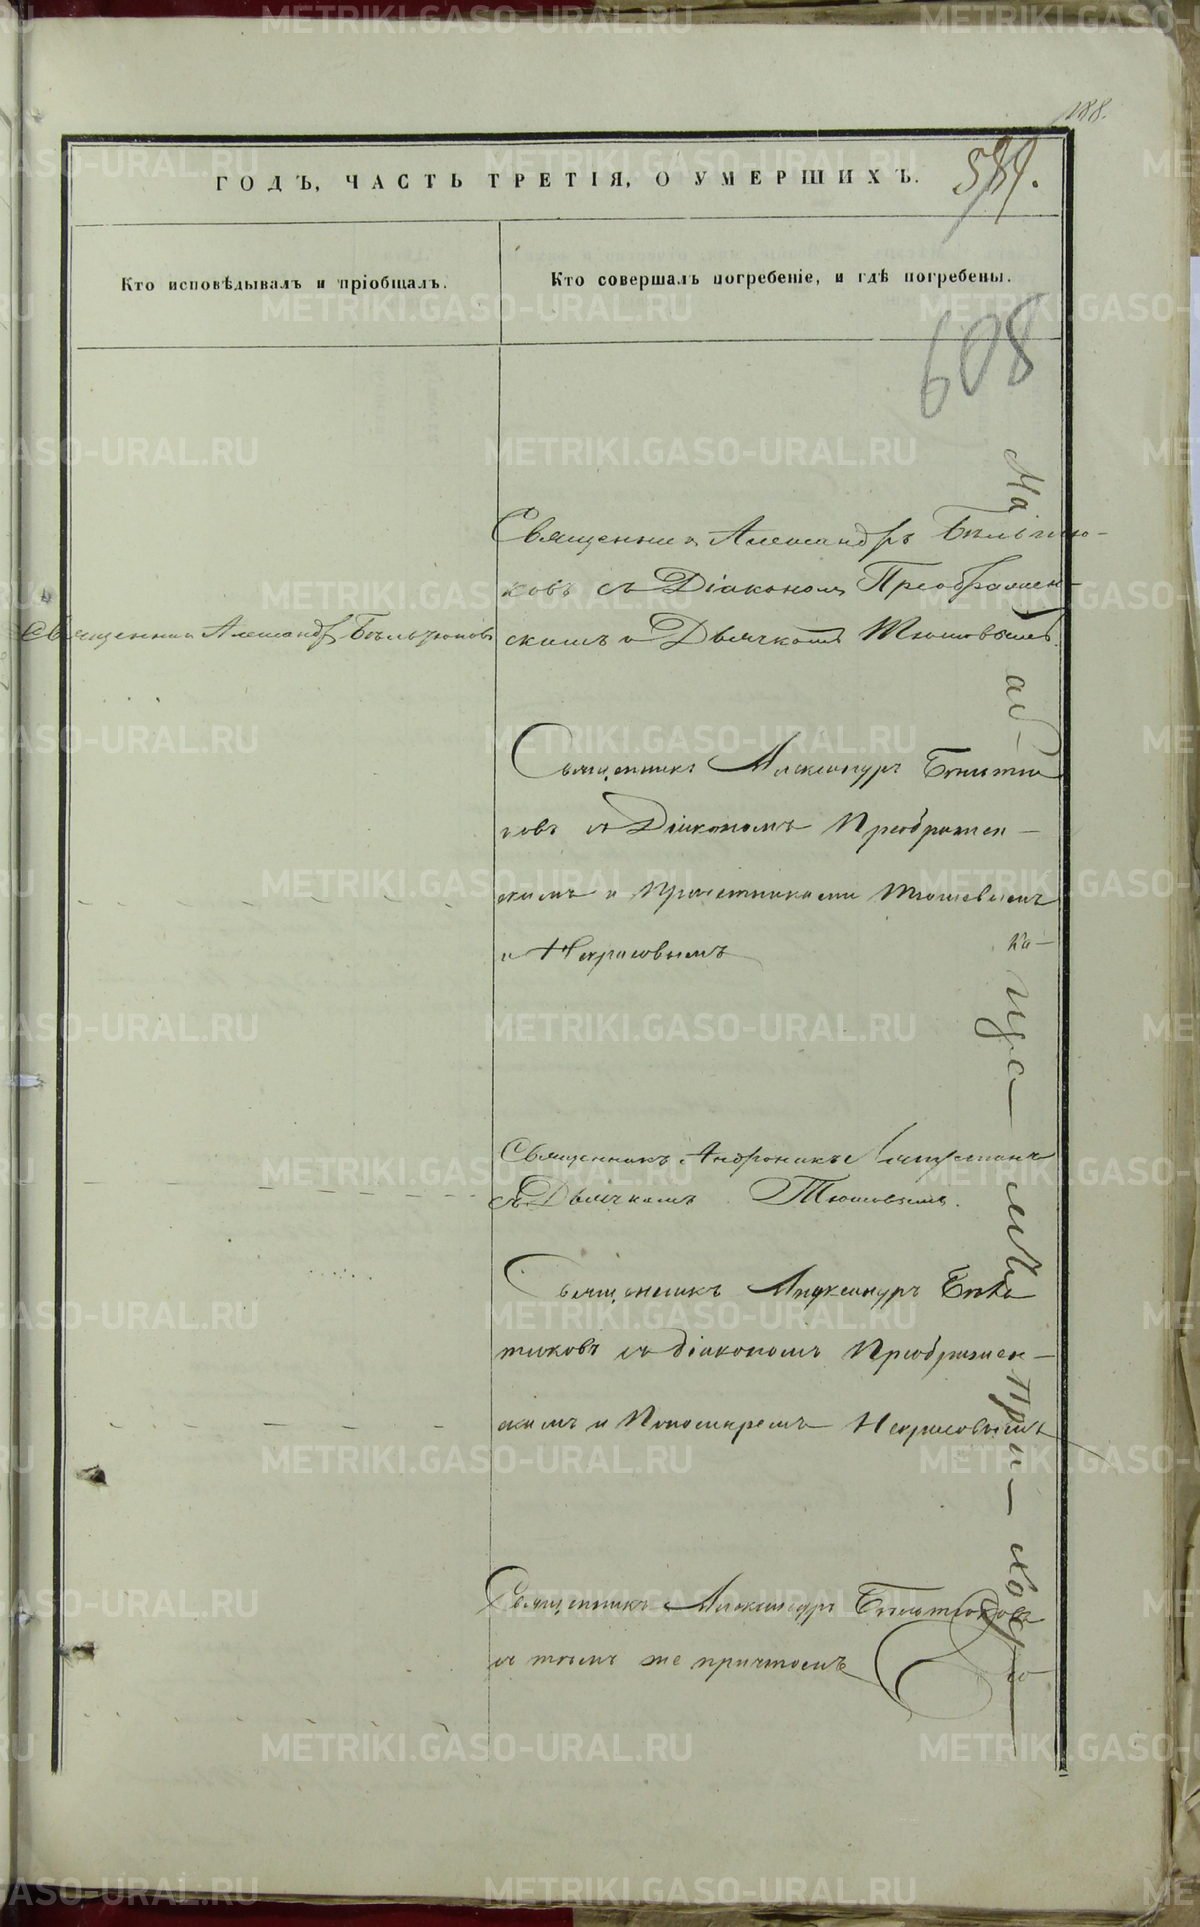 188.
ГОДЪ, ЧАСТЬ ТРЕТІЯ, О УМЕРШИХЪ.
Кто исповѣдывалъ и пріобщалъ.
Кто совершалъ погребеніе, и гдѣ погребены.
608
Священникъ Александръ Бѣльтюковъ
Священникъ Александръ Бѣльтю-
ковъ съ Діакономъ Преображен-
скимъ и Дьячкомъ Тюшовымъ.
Священникъ Александръ Бѣльтю
ковъ съ Діакономъ Преображен-
скимъ и Причетниками Тюшевымъ
и Некрасовымъ
Священникъ Андроникъ
съ Дьячкомъ Тюшовымъ.
Священникъ Александръ Бѣль
тюковъ съ Діакономъ Преображен-
скимъ и Пономаремъ Некрасовымъ
Священникъ Александръ Бѣльтюковъ
съ тѣмъ же причтомъ
METRIKI.GASO-URAL.RU